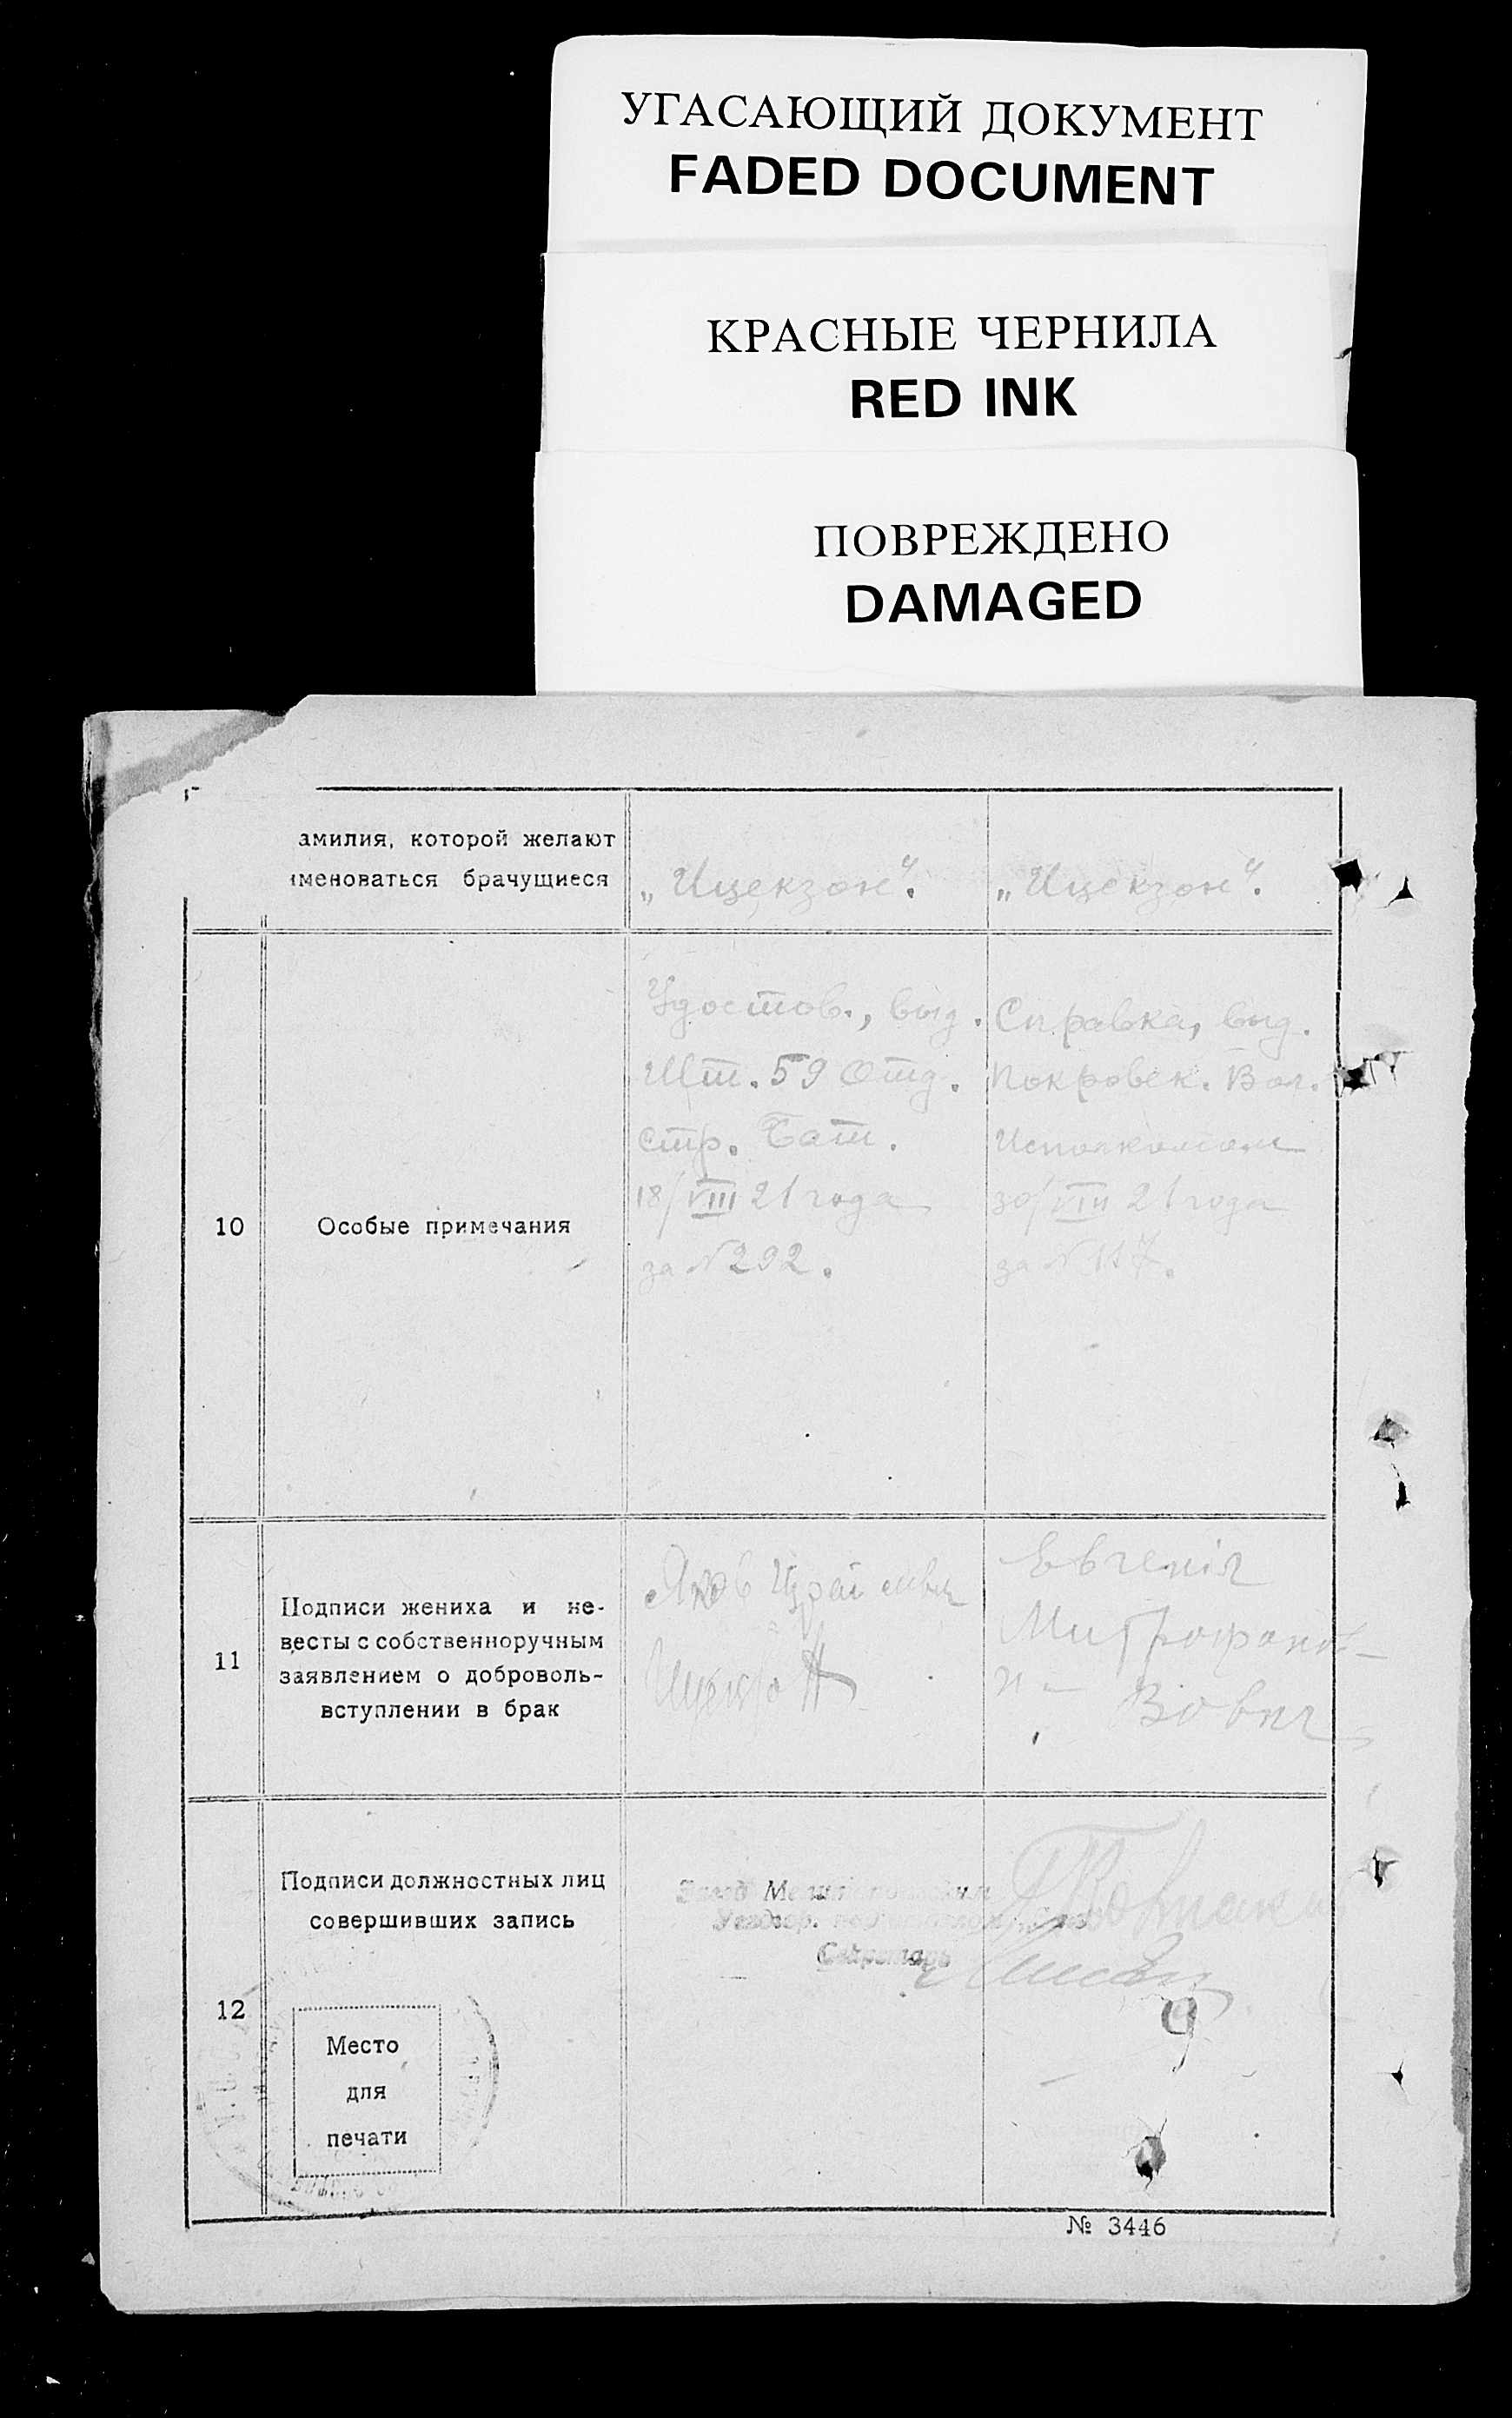 УГАСАЮЩИЙ ДОКУМЕНТ
FADED DOCUMENT
КРАСНЫЕ ЧЕРНИЛА
RED INK
ПОВРЕЖДЕНО
DAMAGED
амилия, которой желают
именоваться брачущиеся
„Ицекзон“.
„Ицекзон“.
10
Особые примечания
Удостов., выд.
Шт. 59 Отд.
Стр. Бат.
18/VIII 21 года
за N 292.
Справка, выд.
Покровск. Вол.
Исполкомом
30/VIII 21 года
за N 117.
11
Подписи жениха и не-
весты с собственноручным
заявлением о доброволь-
вступлении в брак
Яков
Евгенія
Митрофанов-
12
Подписи должностных лиц
совершивших запись
Секретарь
Место
для
печати
№ 3446